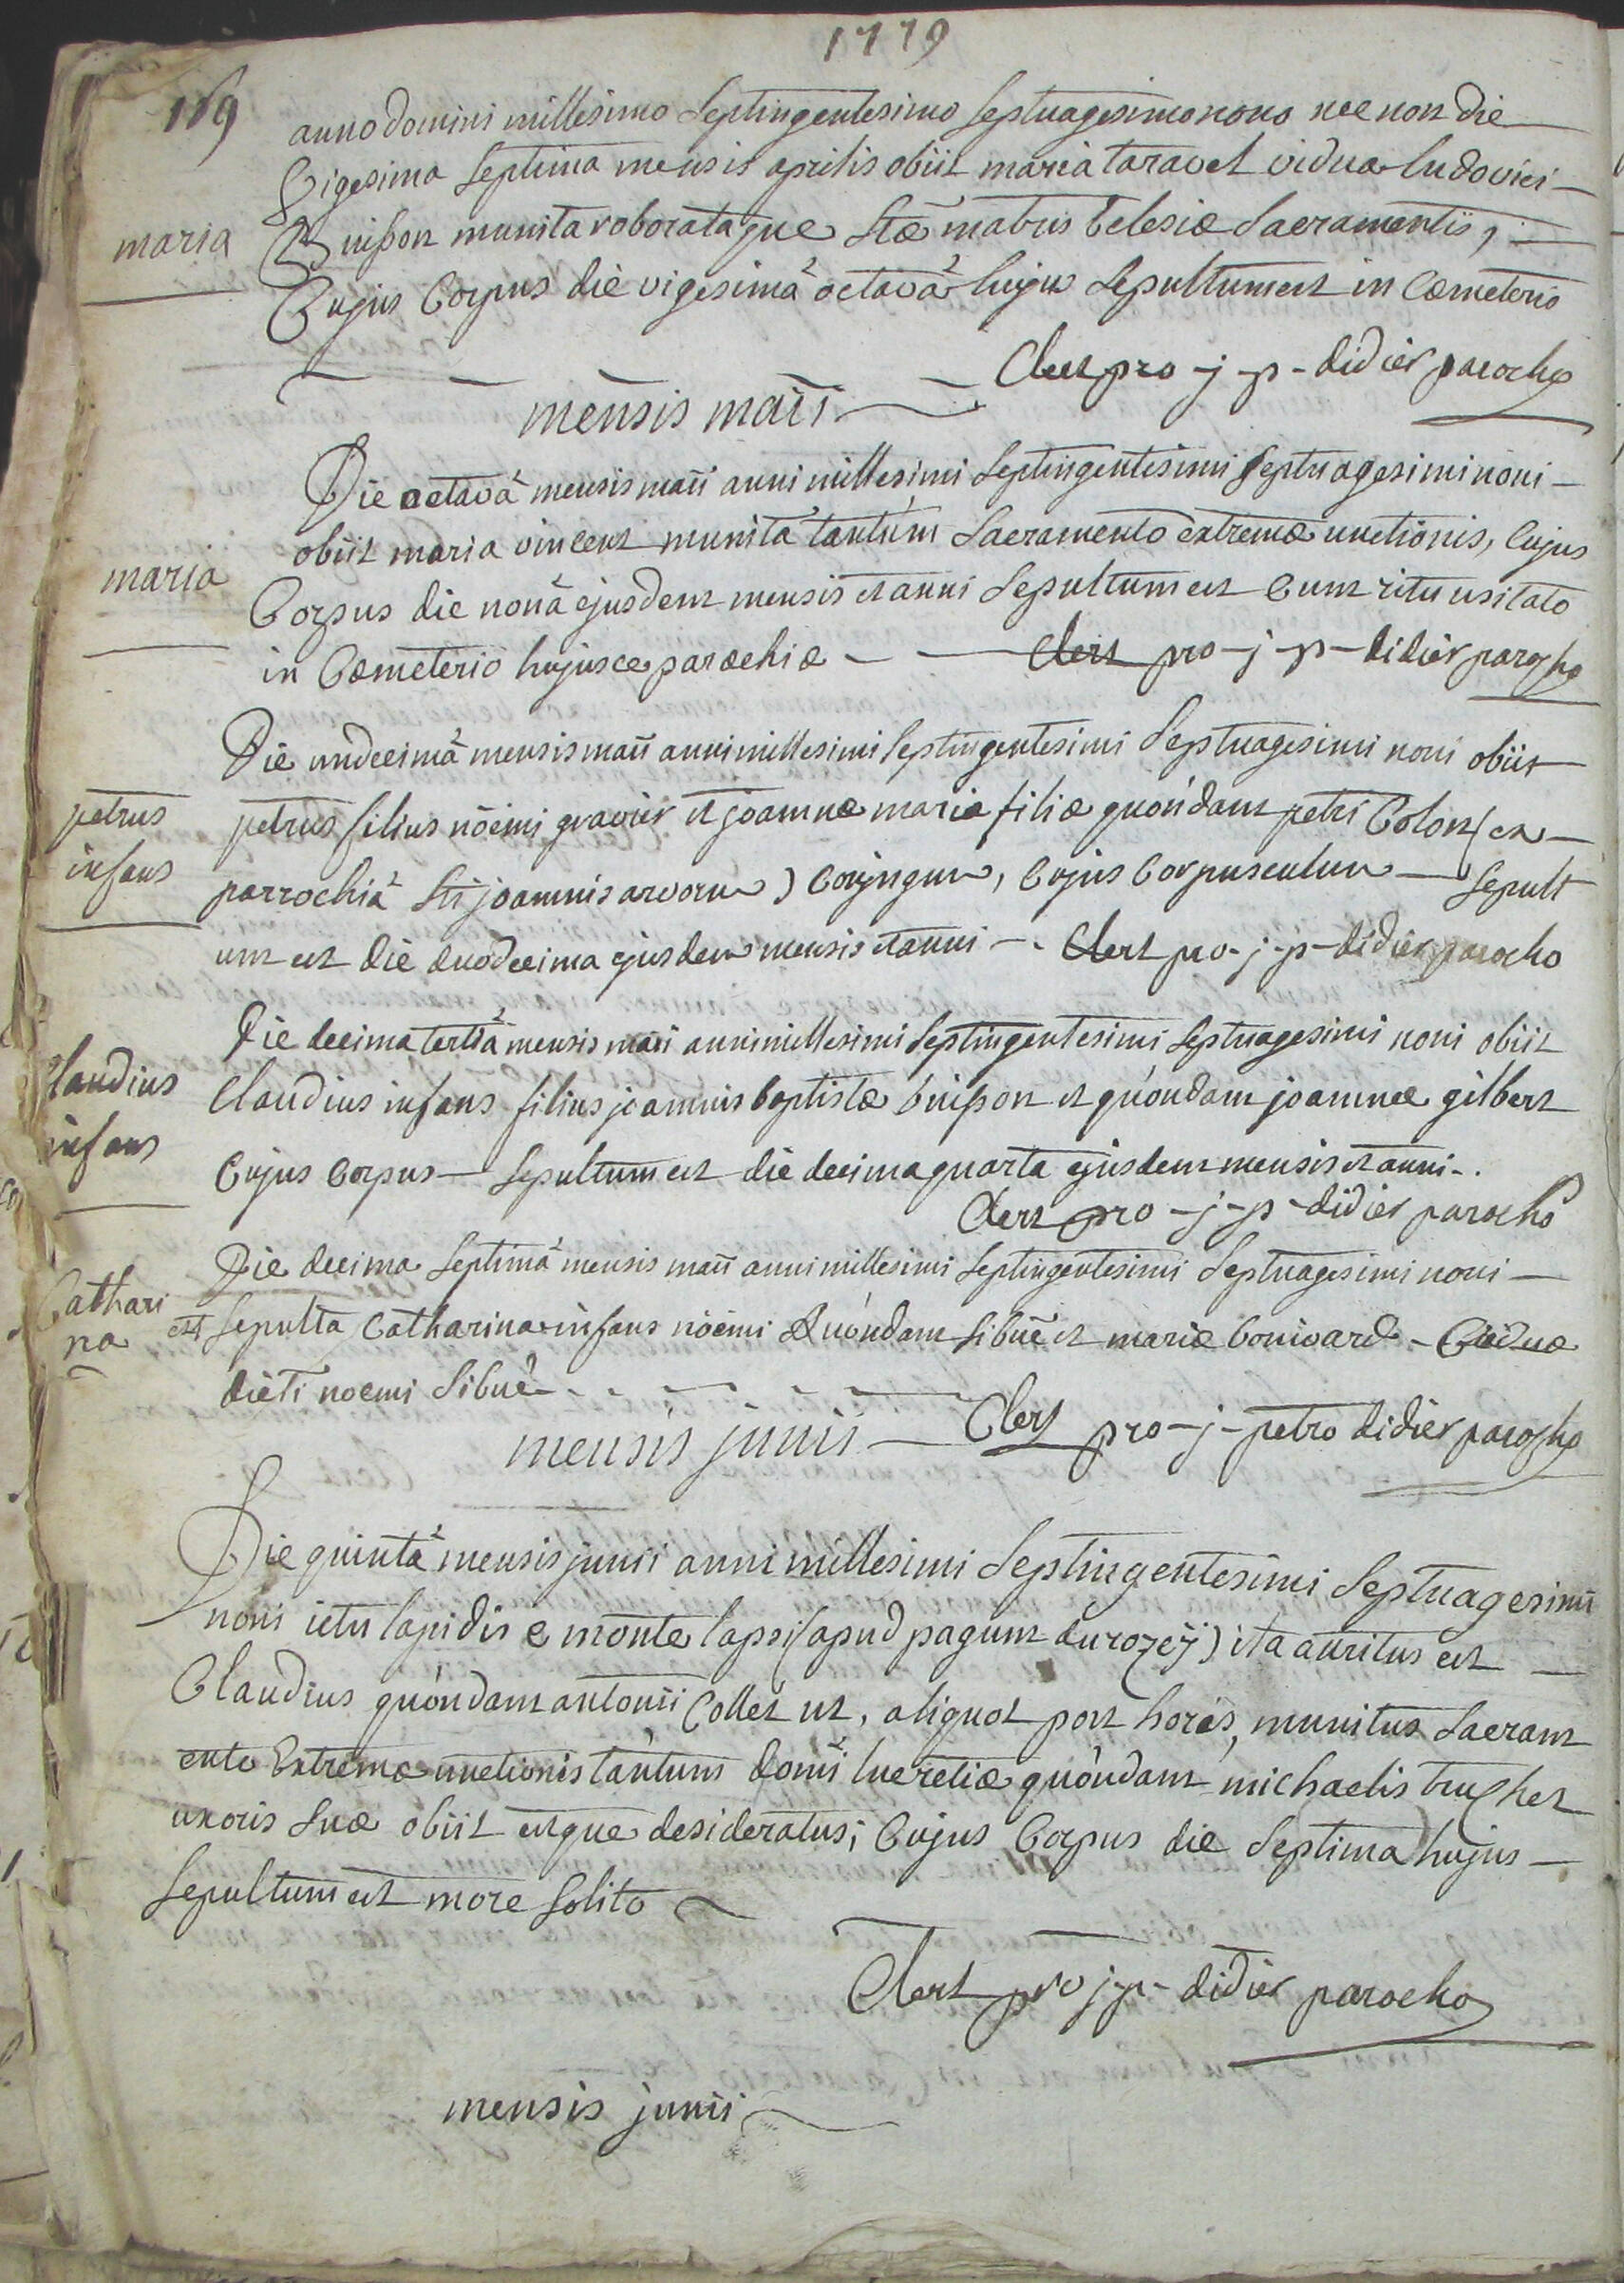 1779
169
anno domini millesimo Septingentesimo Septuagesimo nono nec non die
Vigesima Septima mensis aprilis obiit maria taravel vidua ludovici
maria
Buisson munita roborataque Stæ matris Eclesiæ Sacramentis,
Cujus Corpus die vigesimâ octavâ hujus Sepultum est in Cœmeterio
Clert pro - j - p - didier parocho
mensis maii
Die octavâ mensis maii anni millesimi Septingentesimi Septuagesimi noni
obiit maria vincent munita tantùm Sacramento extremæ unctionis, Cujus
maria
Corpus die nonâ ejusdem mensis et anni Sepultum est Cum ritu usitato
in Cœmeterio hujusce parœchiæ - Clert pro - j - p - didier parocho
Die undecimâ mensis maii anni millesimi Septingentesimi Septuagesimi noni obiit
petrus
infans
petrus filius noëmi gravier et joannæ maria filiæ quóndam petri Colon (ex
parrochiâ Sti joannis arvarum) Conjugum, Cujus Corpusculum - Sepult
um est die duodecima ejusdem mensis et anni - Clert pro - j - p - didier parocho
Die decima tertiâ mensis maii anni millesimi Septingentesimi Septuagesimi noni obiit
Claudius
infans
Claudius infans filius joannis baptistæ buisson et quóndam joannæ gilbert
Cujus Corpus - Sepultum est die decima quarta ejusdem mensis et anni -.
Clert pro - j - p - didier parocho
Die decima Septimâ mensis maii anni millesimi Septingentesimi Septuagesimi noni
Cathari
na
est Sepulta Catharina infans noëmi Quóndam Sibuë et mariæ bonivard - Viduæ
dicti noemi Sibuë
mensis junii - Clert pro - j - petro didier parocho
Die quintâ mensis junii anni millesimi Septingentesimi Septuagesimi
noni ictu lapidis e monte lapsi (apud pagum du rozeÿ) ita attritus est
Claudius quóndam antonii Collet ut, aliquot post horas, munitus Sacram
ento Extremæ unctionis tantùm domi lucretiæ quóndam michaelis truchet
uxoris Suæ obiit estque desideratus; Cujus Corpus die Septima hujus
Sepultum est more Solito
Clert pro j - p - didier parocho
mensis junii